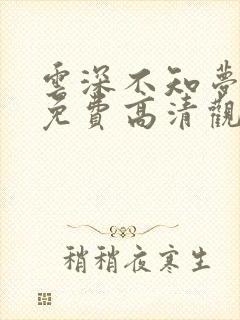 雲深不知夢
免費高清觀
稍稍夜寒生